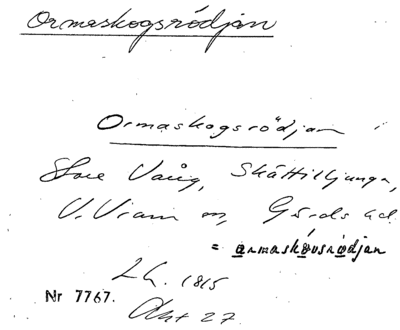 Ormaskogsrödjan
Ormaskogsrödjan i
Store Vång, Skättilljunga,
V. Vram sn, Gärds hd.
= ormaskóvsrödjan
LA. 1815
Nr 7767. Akt 27